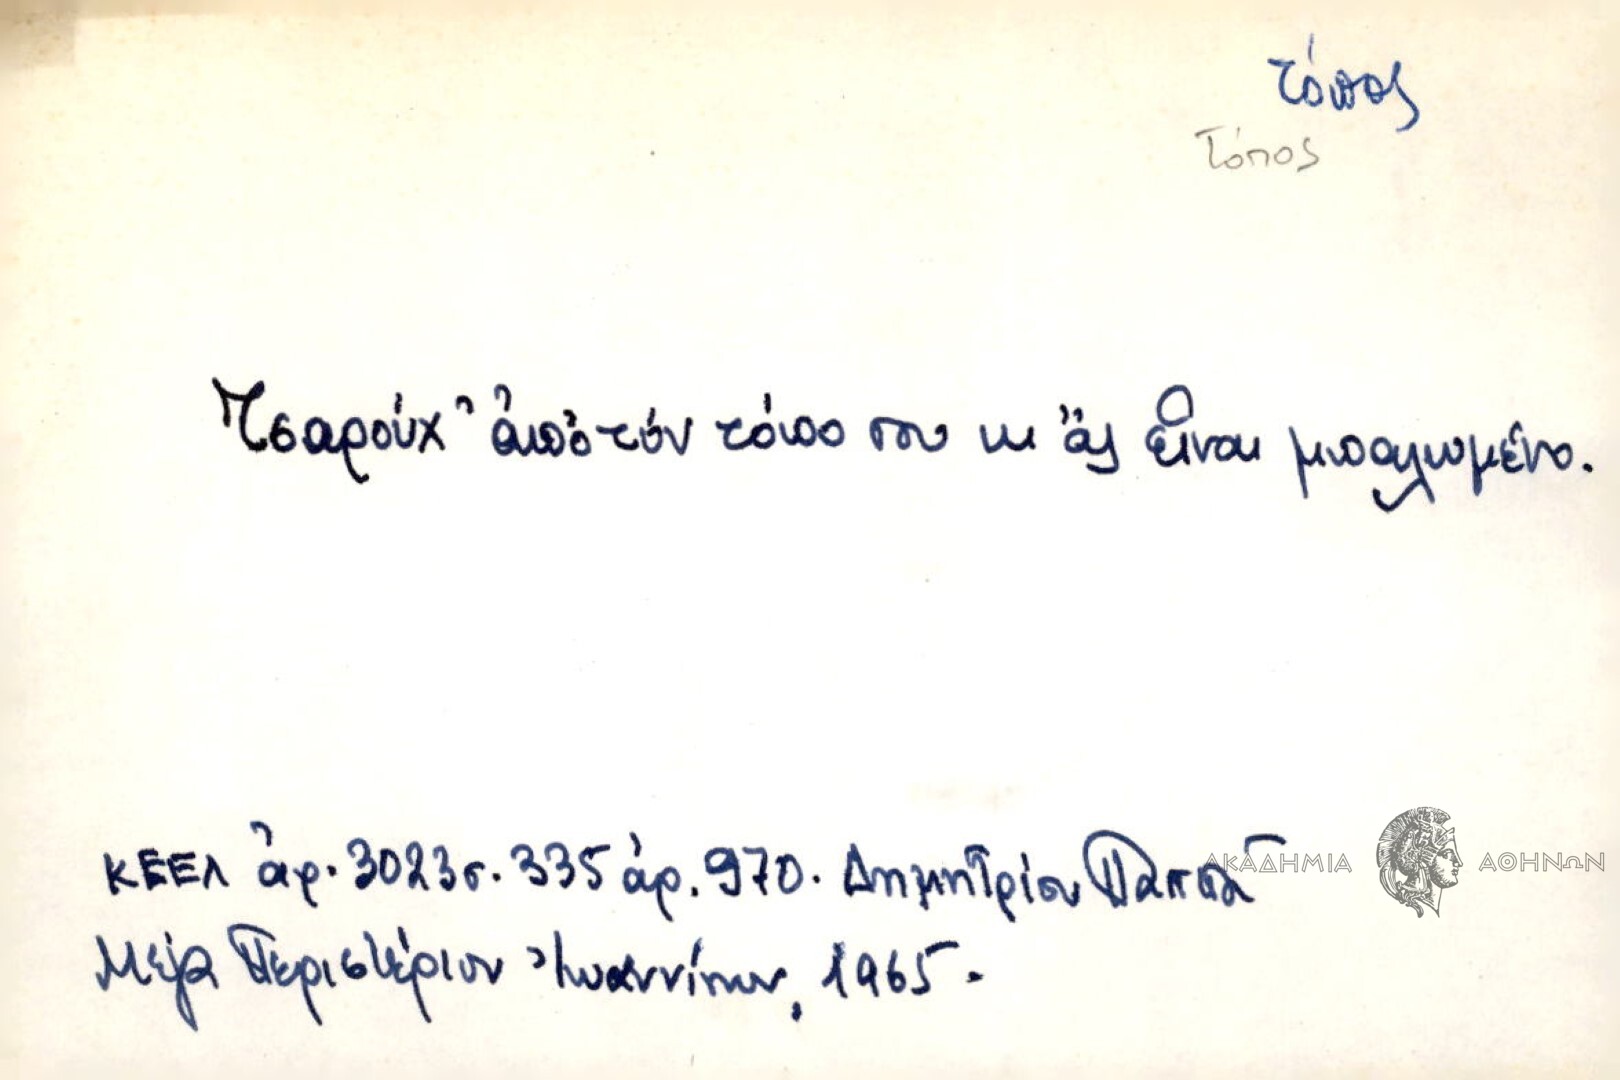 τόπος
Τόπος
Τσαρούχ' ἀπὸ τόν τόπο σου κι ἄς εἶναι μπαλωμένο.
ΚΕΕΛ ἀρ. 3023 σ. 335 ἀρ. 970. Δημητρίου Παππᾶ
ΑΚΑΔΗΜΙΑ ΑΘΗΝΩΝ
Μέγα Περιστέριον Ἰωαννίνων, 1965.